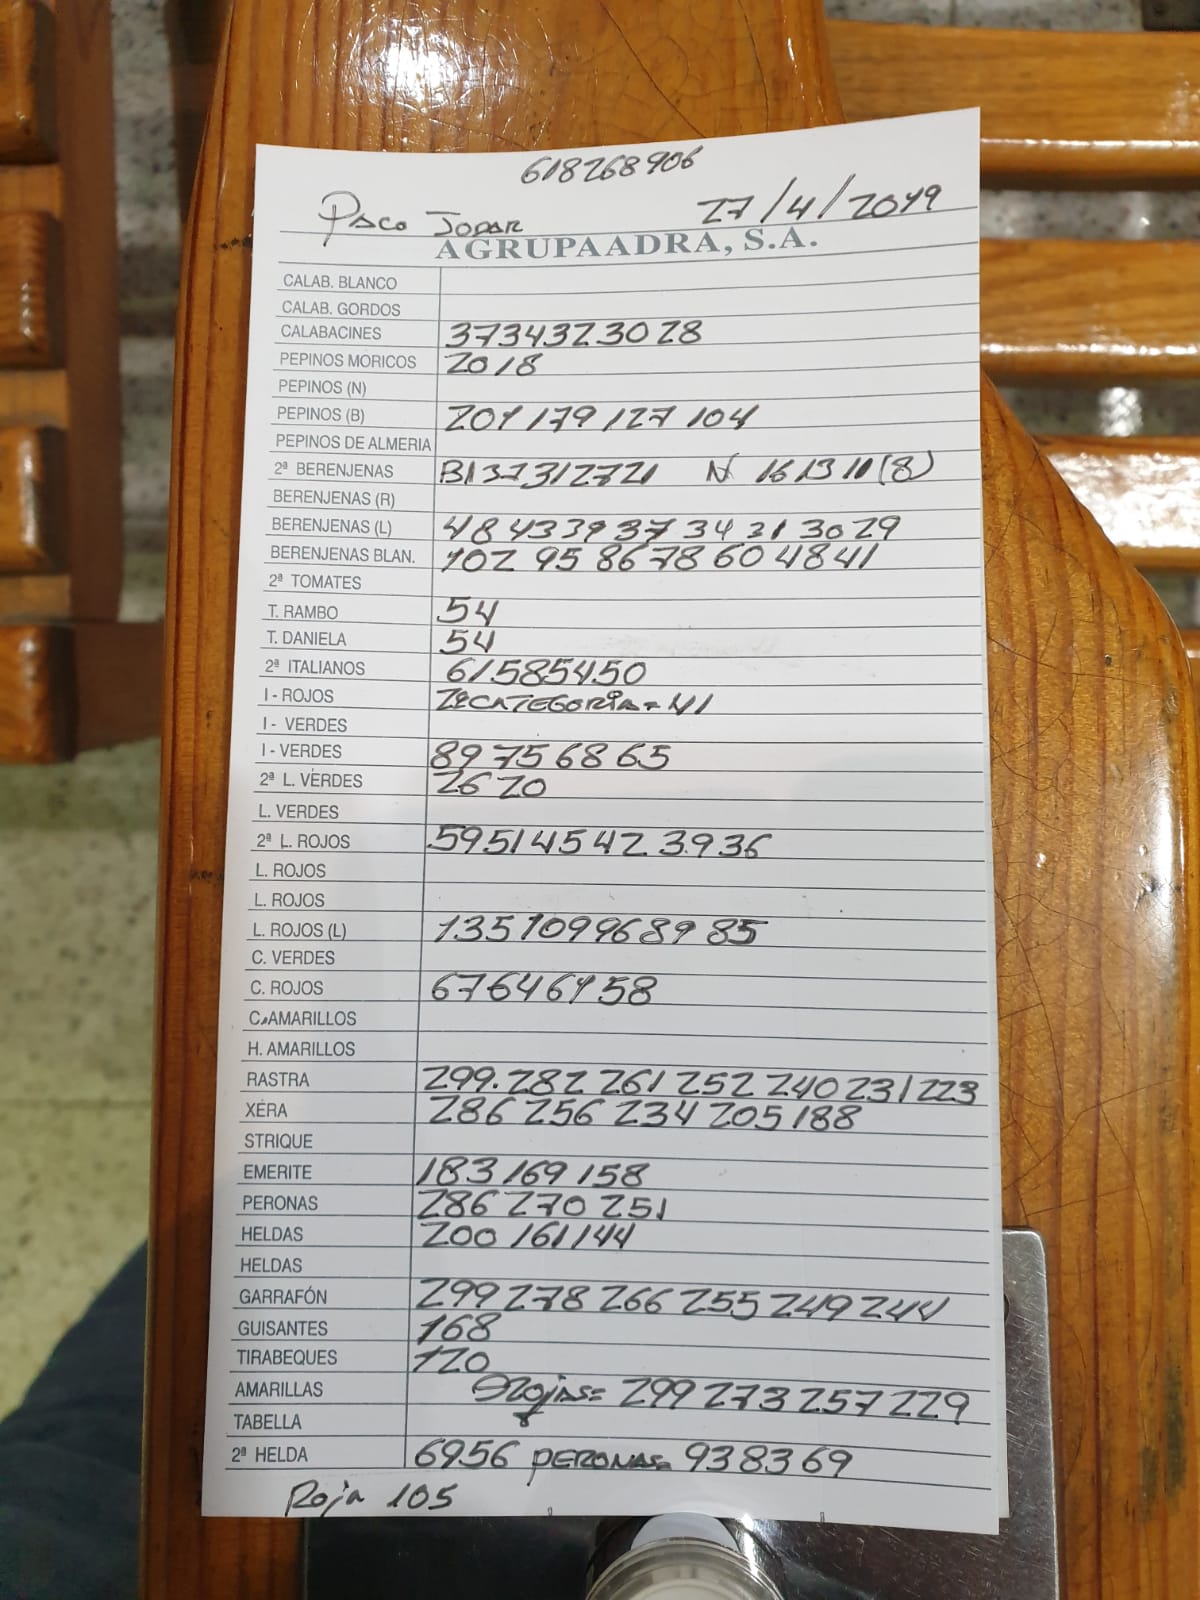 618268906
Paco Jodar 27/4/2019
AGRUPAADRA, S.A.
CALAB. BLANCO
CALAB. GORDOS
CALABACINES 37 34 32 30 28
PEPINOS MORICOS 20 18
PEPINOS (N)
PEPINOS (B) 201 179 127 104
PEPINOS DE ALMERIA
2ª BERENJENAS B 137 31 27 21 N 16 13 11 (8)
BERENJENAS (R)
BERENJENAS (L) 48 43 39 37 34 31 30 29
BERENJENAS BLAN. 102 95 86 78 60 48 41
2ª TOMATES
T. RAMBO 54
T. DANIELA 54
2ª ITALIANOS 61 58 54 50
I - ROJOS 2ª CATEGORIA = 41
I - VERDES
I - VERDES 89 75 68 65
2ª L. VERDES 26 20
L. VERDES
2ª L. ROJOS 59 51 45 42 39 36
L. ROJOS
L. ROJOS
L. ROJOS (L) 135 109 96 89 85
C. VERDES
C. ROJOS 67 64 61 58
C. AMARILLOS
H. AMARILLOS
RASTRA 299 282 261 252 240 231 223
XÉRA 286 256 234 205 188
STRIQUE
EMERITE 183 169 158
PERONAS 286 270 251
HELDAS 200 161 144
HELDAS
GARRAFÓN 299 278 266 255 249 244
GUISANTES 168
TIRABEQUES 120
AMARILLAS Rojas = 299 273 257 229
TABELLA
2ª HELDA 69 56 PERONAS = 93 83 69
Roja 105